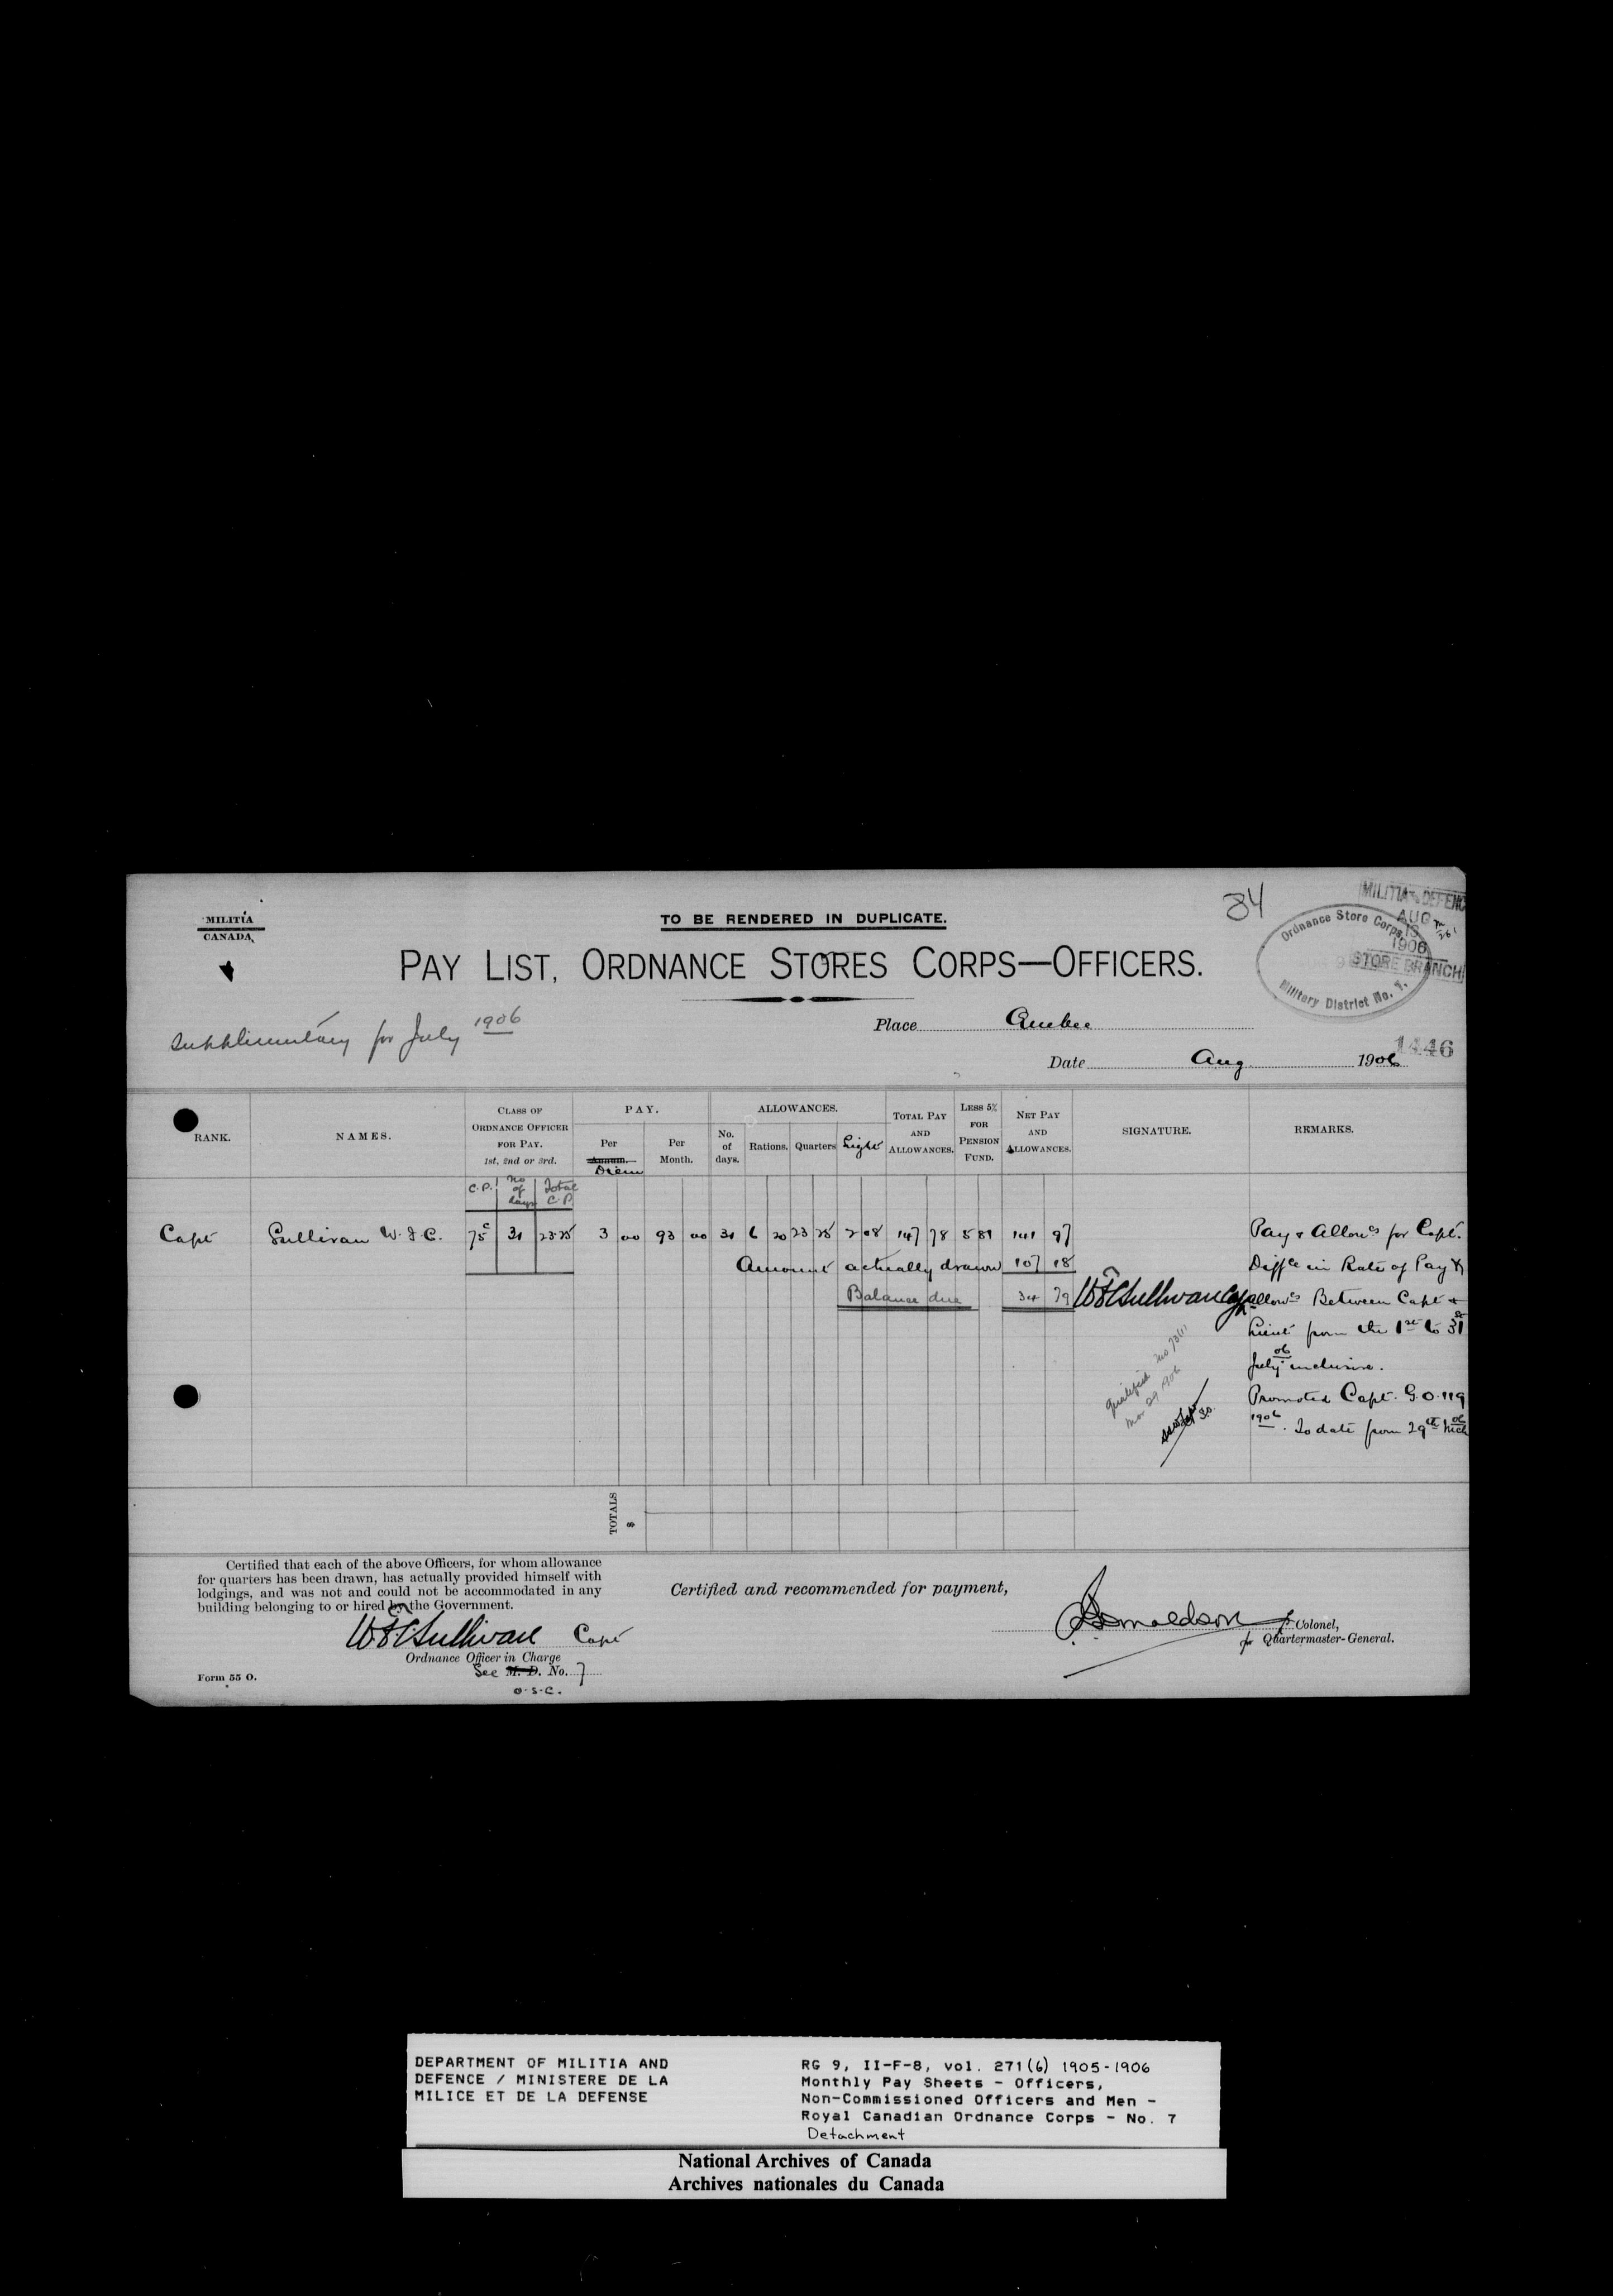 MILITIA
CANADA
TO BE RENDERED IN DUPLICATE.
84
MILITIA & DEFENC
AUG
13
1906
STORE BRANCH
Ordnance Store Corps,
Military District No. 7.
PAY LIST, ORDNANCE STORES CORPS—OFFICERS.
Supplimentary for July 1906
Place Quebec
1446
Date Aug 1906
RANK. NAMES. CLASS OF ORDNANCE OFFICER FOR PAY. 1st, 2nd or 3rd. PAY. Per Annum. Diem Per Month. ALLOWANCES. No. of days. Rations. Quarters Light TOTAL PAY AND ALLOWANCES. LESS 5% FOR PENSION FUND. NET PAY AND ALLOWANCES. SIGNATURE. REMARKS.
C.P. No of days Total C.P.
Capt Sullivan W.F.C. 75c 31 23.25 3 00 93 00 31 6 20 23 25 2 08 147 78 5 81 141 97 Pay & Allowcs for Capt.
Amount actually drawn 107 18 Diffce in Rate of Pay &
Balance due 34 79 WFCSullivan Capt allowcs Between Capt &
Lieut from the 1st to 31st
July 06 inclusive.
Qualified
Mar 29 1906
Promoted Capt. G.O. 119
1906. To date from 29th Mch 06
TOTALS $
Certified that each of the above Officers, for whom allowance
for quarters has been drawn, has actually provided himself with
lodgings, and was not and could not be accommodated in any
building belonging to or hired by the Government.
Certified and recommended for payment,
WFCSullivan Capt
Ordnance Officer in Charge
See M. D. No. 7
O.S.C.
Donaldson
Colonel,
for Quartermaster-General.
Form 55 O.
DEPARTMENT OF MILITIA AND
DEFENCE / MINISTERE DE LA
MILICE ET DE LA DEFENSE
RG 9, II-F-8, vol. 271(6) 1905-1906
Monthly Pay Sheets - Officers,
Non-Commissioned Officers and Men -
Royal Canadian Ordnance Corps - No. 7
Detachment
National Archives of Canada
Archives nationales du Canada